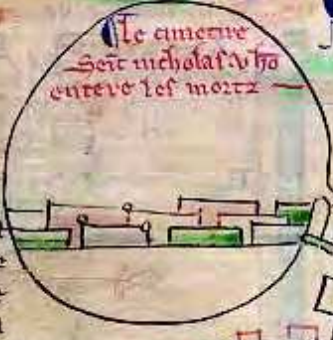 Le cimetire
Seit nicholas u hō
entere les mortz